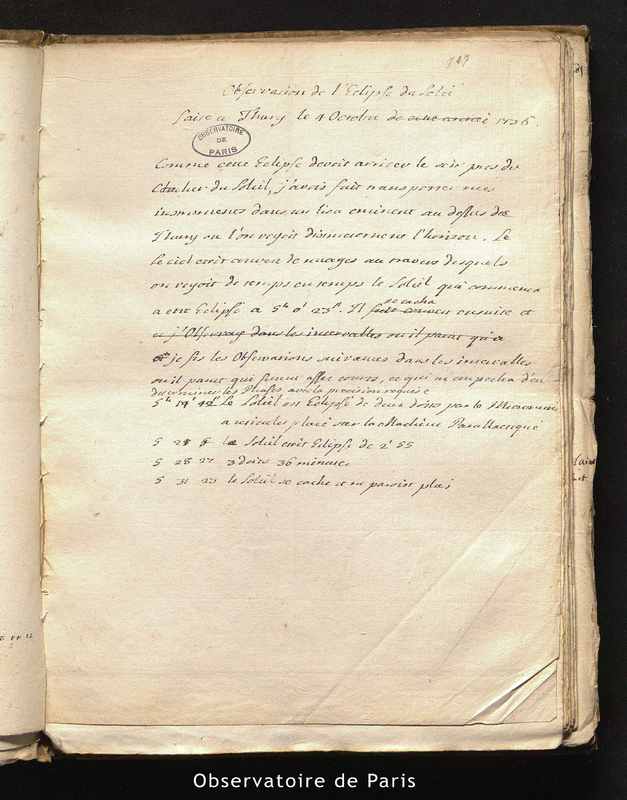 727
Observation de l'Eclipse du Soleil
faite a Thury le 4 Octobre de cette année 1736.
OBSERVATOIRE
DE
PARIS
Comme cette Eclipse devoit arriver le soir pres du
Coucher du Soleil, j'avois fait transporter mes
instrumens dans un lieu eminent au dessus de
Thury ou l'on voyoit distinctement l'horison. Le
le ciel etoit couvert de nuages au travers desquels
on voyoit de temps en temps le Soleil qui commença
a etre Eclipsé a 5h 0' 23". Il se cacha ensuite et
et j'Observay dans les intervalles ou il parut qu'a
je fis les Observations suivantes dans les intervalles
ou il parut qui furent assez courts, ce qui m'empecha d'en
determiner les Phases avec la precision requise
5h 14' 42" Le Soleil est Eclipsé de deux doits par le Micrometre
a reticules placé sur la Machine Parallactique
5 21 5 le Soleil etoit Eclipsé de 2' 55
5 28 27 3 doits 36 minutes
5 31 23 le Soleil se cache et ne paroist plus
Observatoire de Paris